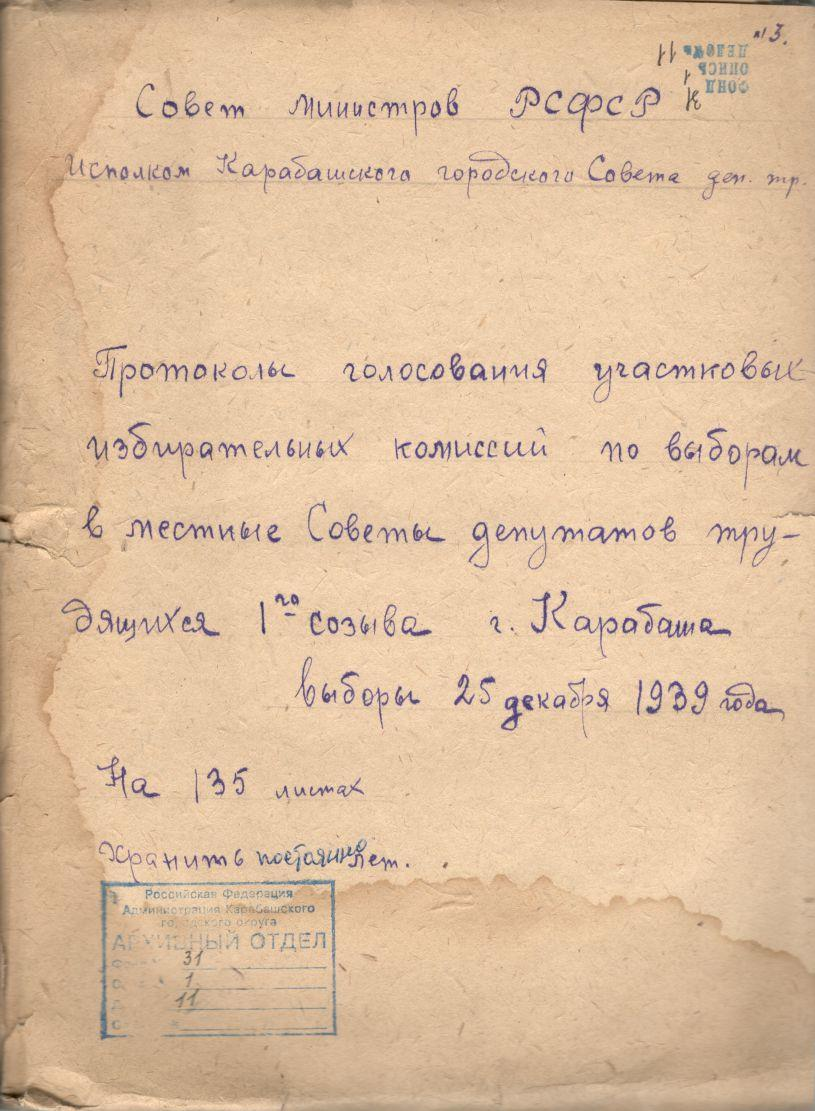 № 3.
ФОНД 31
ОПИСЬ 1
ДЕЛО № 11
Совет Министров РСФСР
Исполком Карабашского городского Совета деп. тр.
Протоколы голосования участковых
избирательных комиссий по выборам
в местные Советы депутатов тру-
дящихся 1го созыва г. Карабаша
выборы 25 декабря 1939 года
На 135 листах
Хранить постоянно лет.
Российская Федерация
Администрация Карабашского
городского округа
АРХИВНЫЙ ОТДЕЛ
31
1
11